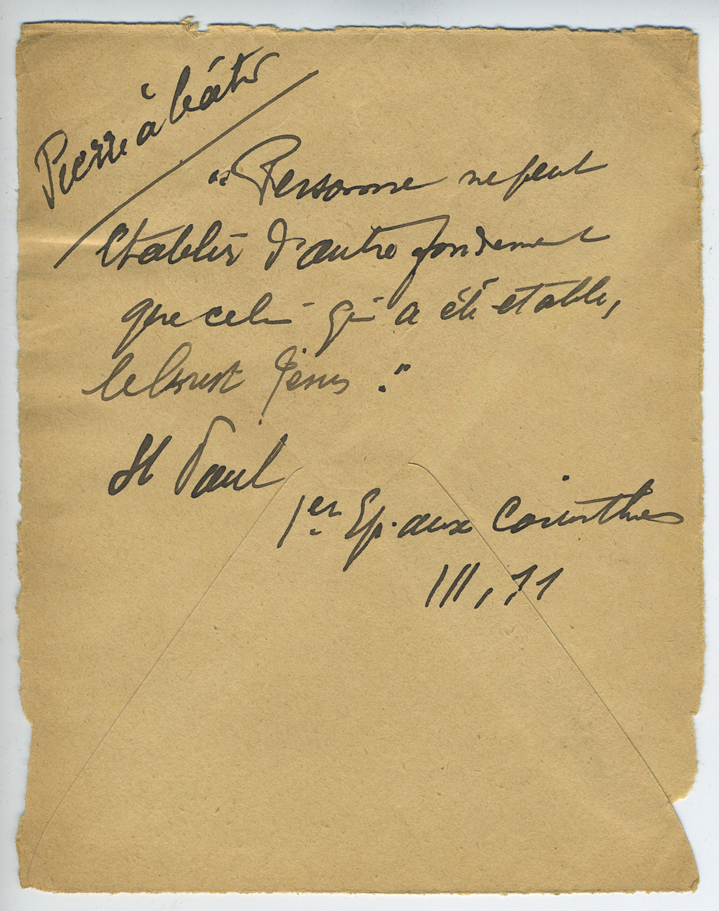 Pierre à bâtir
"Personne ne peut
établir d'autre fondement
que celui qui a été établi,
le Christ Jésus."
St Paul
1er Ep. aux Corinthiens
III, 11